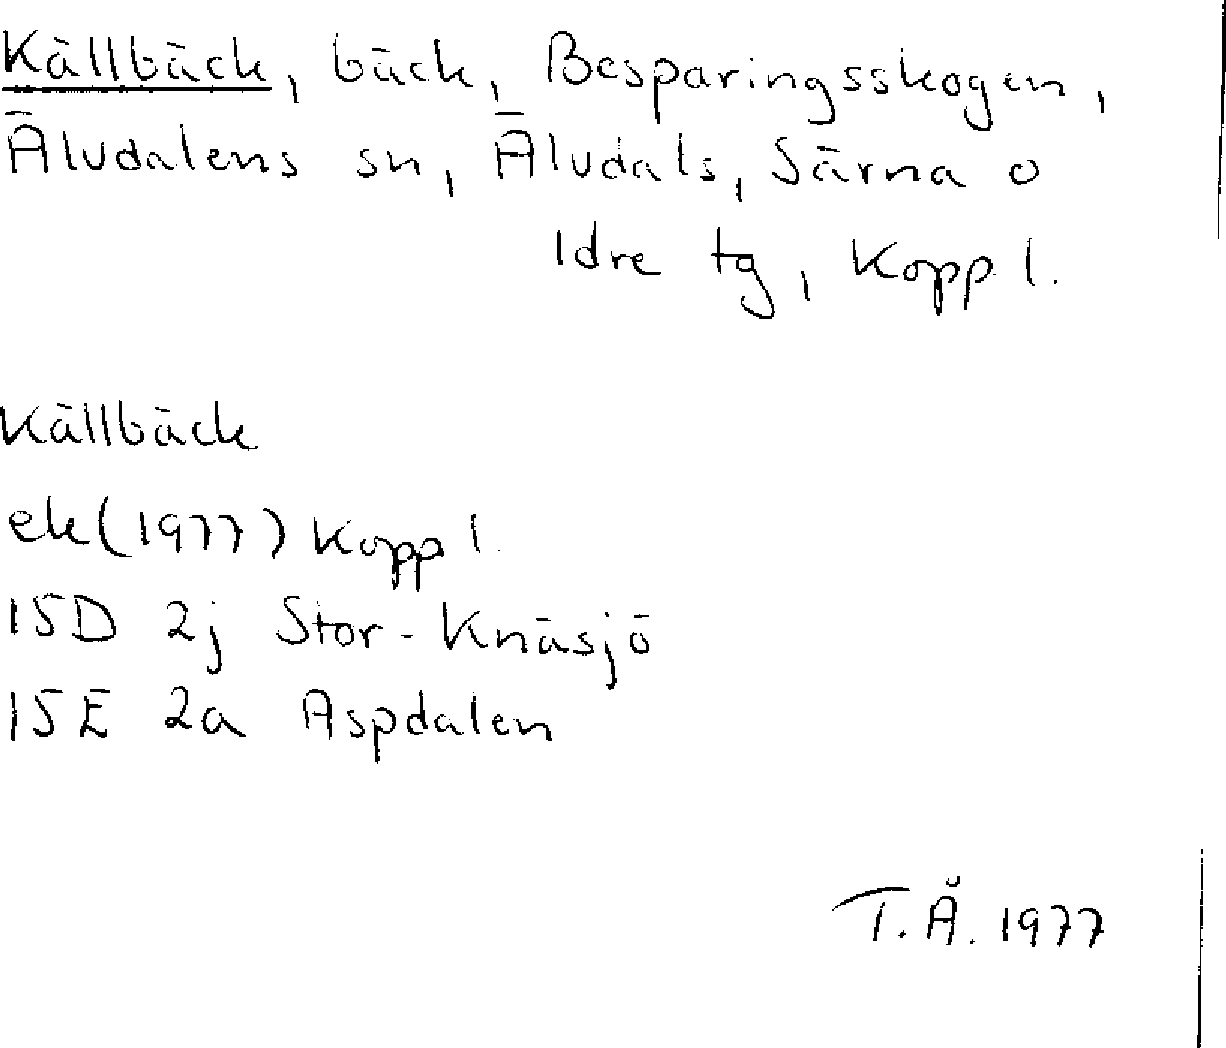 Källbäck, bäck, Besparingsskogen,
Älvdalens sn, Älvdals, Särna o
Idre tg, Kopp l.
Källbäck
ek(1977) Kopp l.
15D 2j Stor-Knäsjö
15E 2a Aspdalen
T.Å. 1977